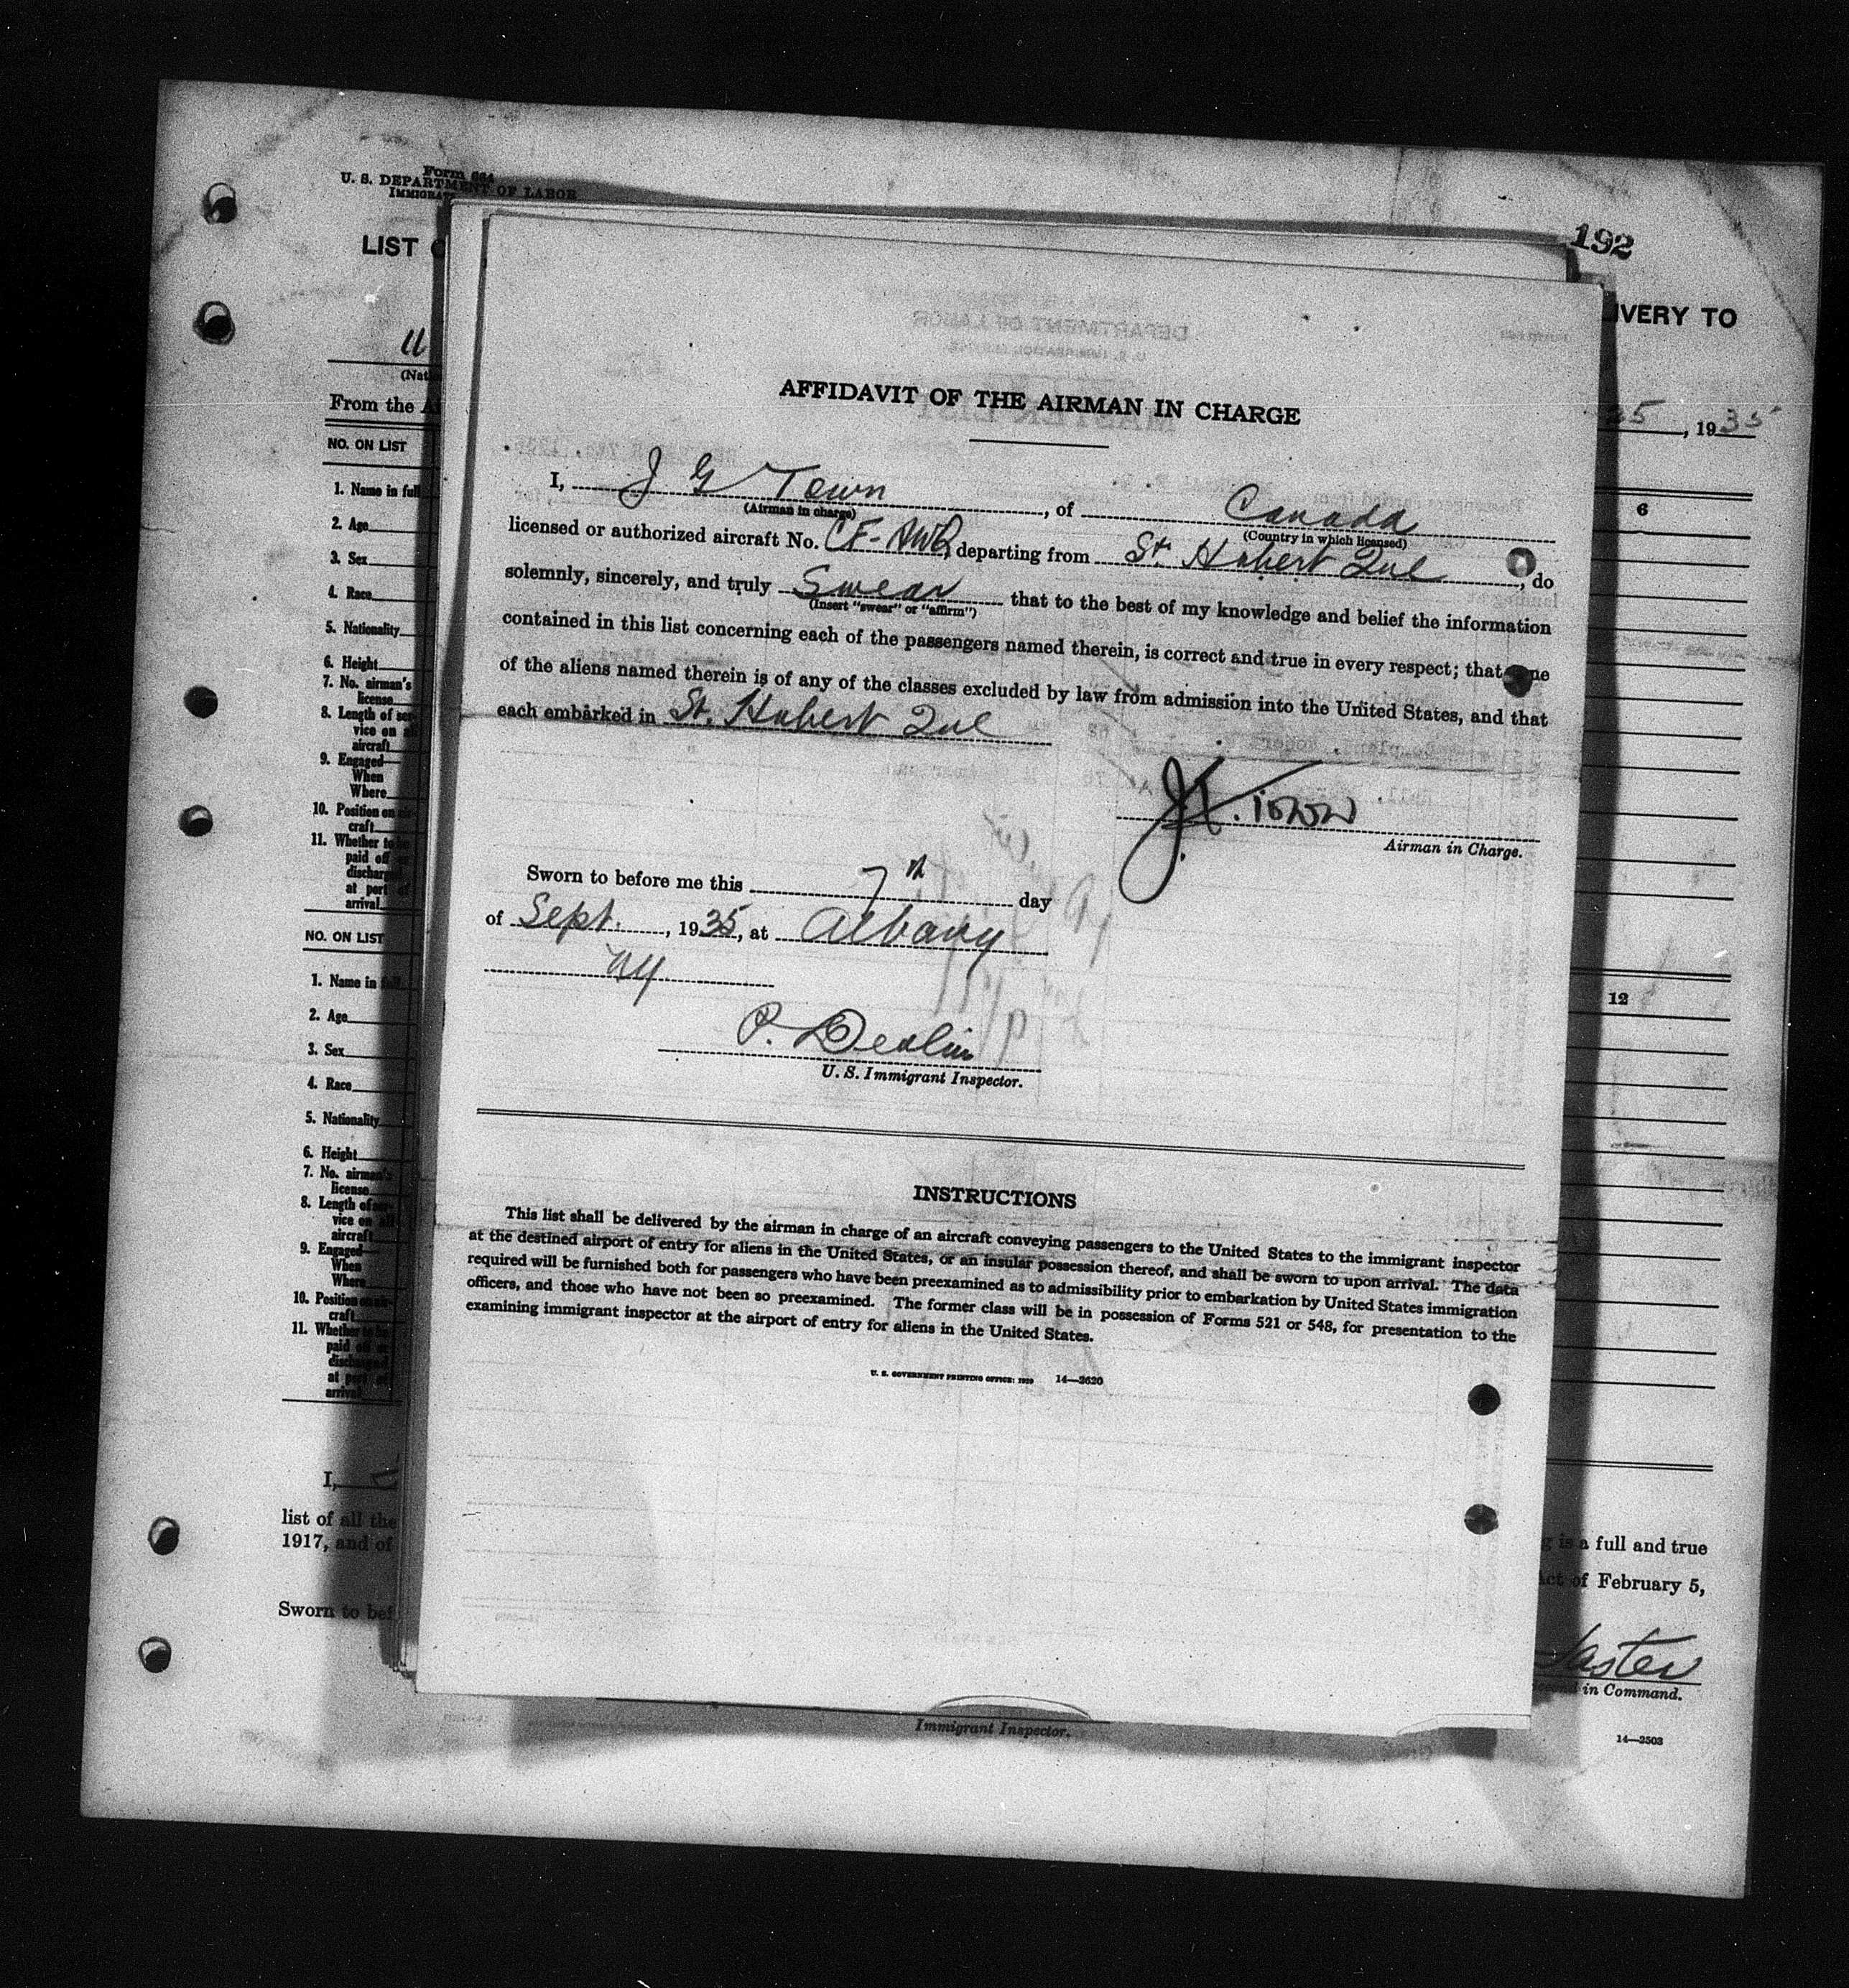 Form 664
U. S. DEPARTMENT OF LABOR
LIST
192
IVERY TO
(Nat
From the
35, 1935
NO. ON LIST
6
1. Name in full
2. Age
3. Sex
4. Race
5. Nationality
6. Height
7. No. airman's
license
8. Length of ser-
vice on
aircraft
9. Engaged—
When
Where
10. Position on air-
craft
11. Whether to be
paid off or
discharged
at port of
arrival
NO. ON LIST
12
1. Name in full
2. Age
3. Sex
4. Race
5. Nationality
6. Height
7. No. airman's
license
8. Length of ser-
vice on
aircraft
9. Engaged—
When
Where
10. Position on air-
craft
11. Whether to be
paid off or
discharged
at port of
arrival
I,
list of all the
1917, and of
Sworn to bef
AFFIDAVIT OF THE AIRMAN IN CHARGE
I, J G Town, of Canada
(Airman in charge) (Country in which licensed)
licensed or authorized aircraft No. CF- departing from St. Hubert Que, do
solemnly, sincerely, and truly Swear that to the best of my knowledge and belief the information
(Insert "swear" or "affirm")
contained in this list concerning each of the passengers named therein, is correct and true in every respect; that ne
of the aliens named therein is of any of the classes excluded by law from admission into the United States, and that
each embarked in St. Hubert Que
Town
Airman in Charge.
Sworn to before me this 7th day
of Sept., 1935, at Albany
NY
P. Devlin
U. S. Immigrant Inspector.
INSTRUCTIONS
This list shall be delivered by the airman in charge of an aircraft conveying passengers to the United States to the immigrant inspector
at the destined airport of entry for aliens in the United States, or an insular possession thereof, and shall be sworn to upon arrival. The data
required will be furnished both for passengers who have been preexamined as to admissibility prior to embarkation by United States immigration
officers, and those who have not been so preexamined. The former class will be in possession of Forms 521 or 548, for presentation to the
examining immigrant inspector at the airport of entry for aliens in the United States.
U. S. GOVERNMENT PRINTING OFFICE: 14—2620
is a full and true
Act of February 5,
second in Command.
Immigrant Inspector.
14—2503